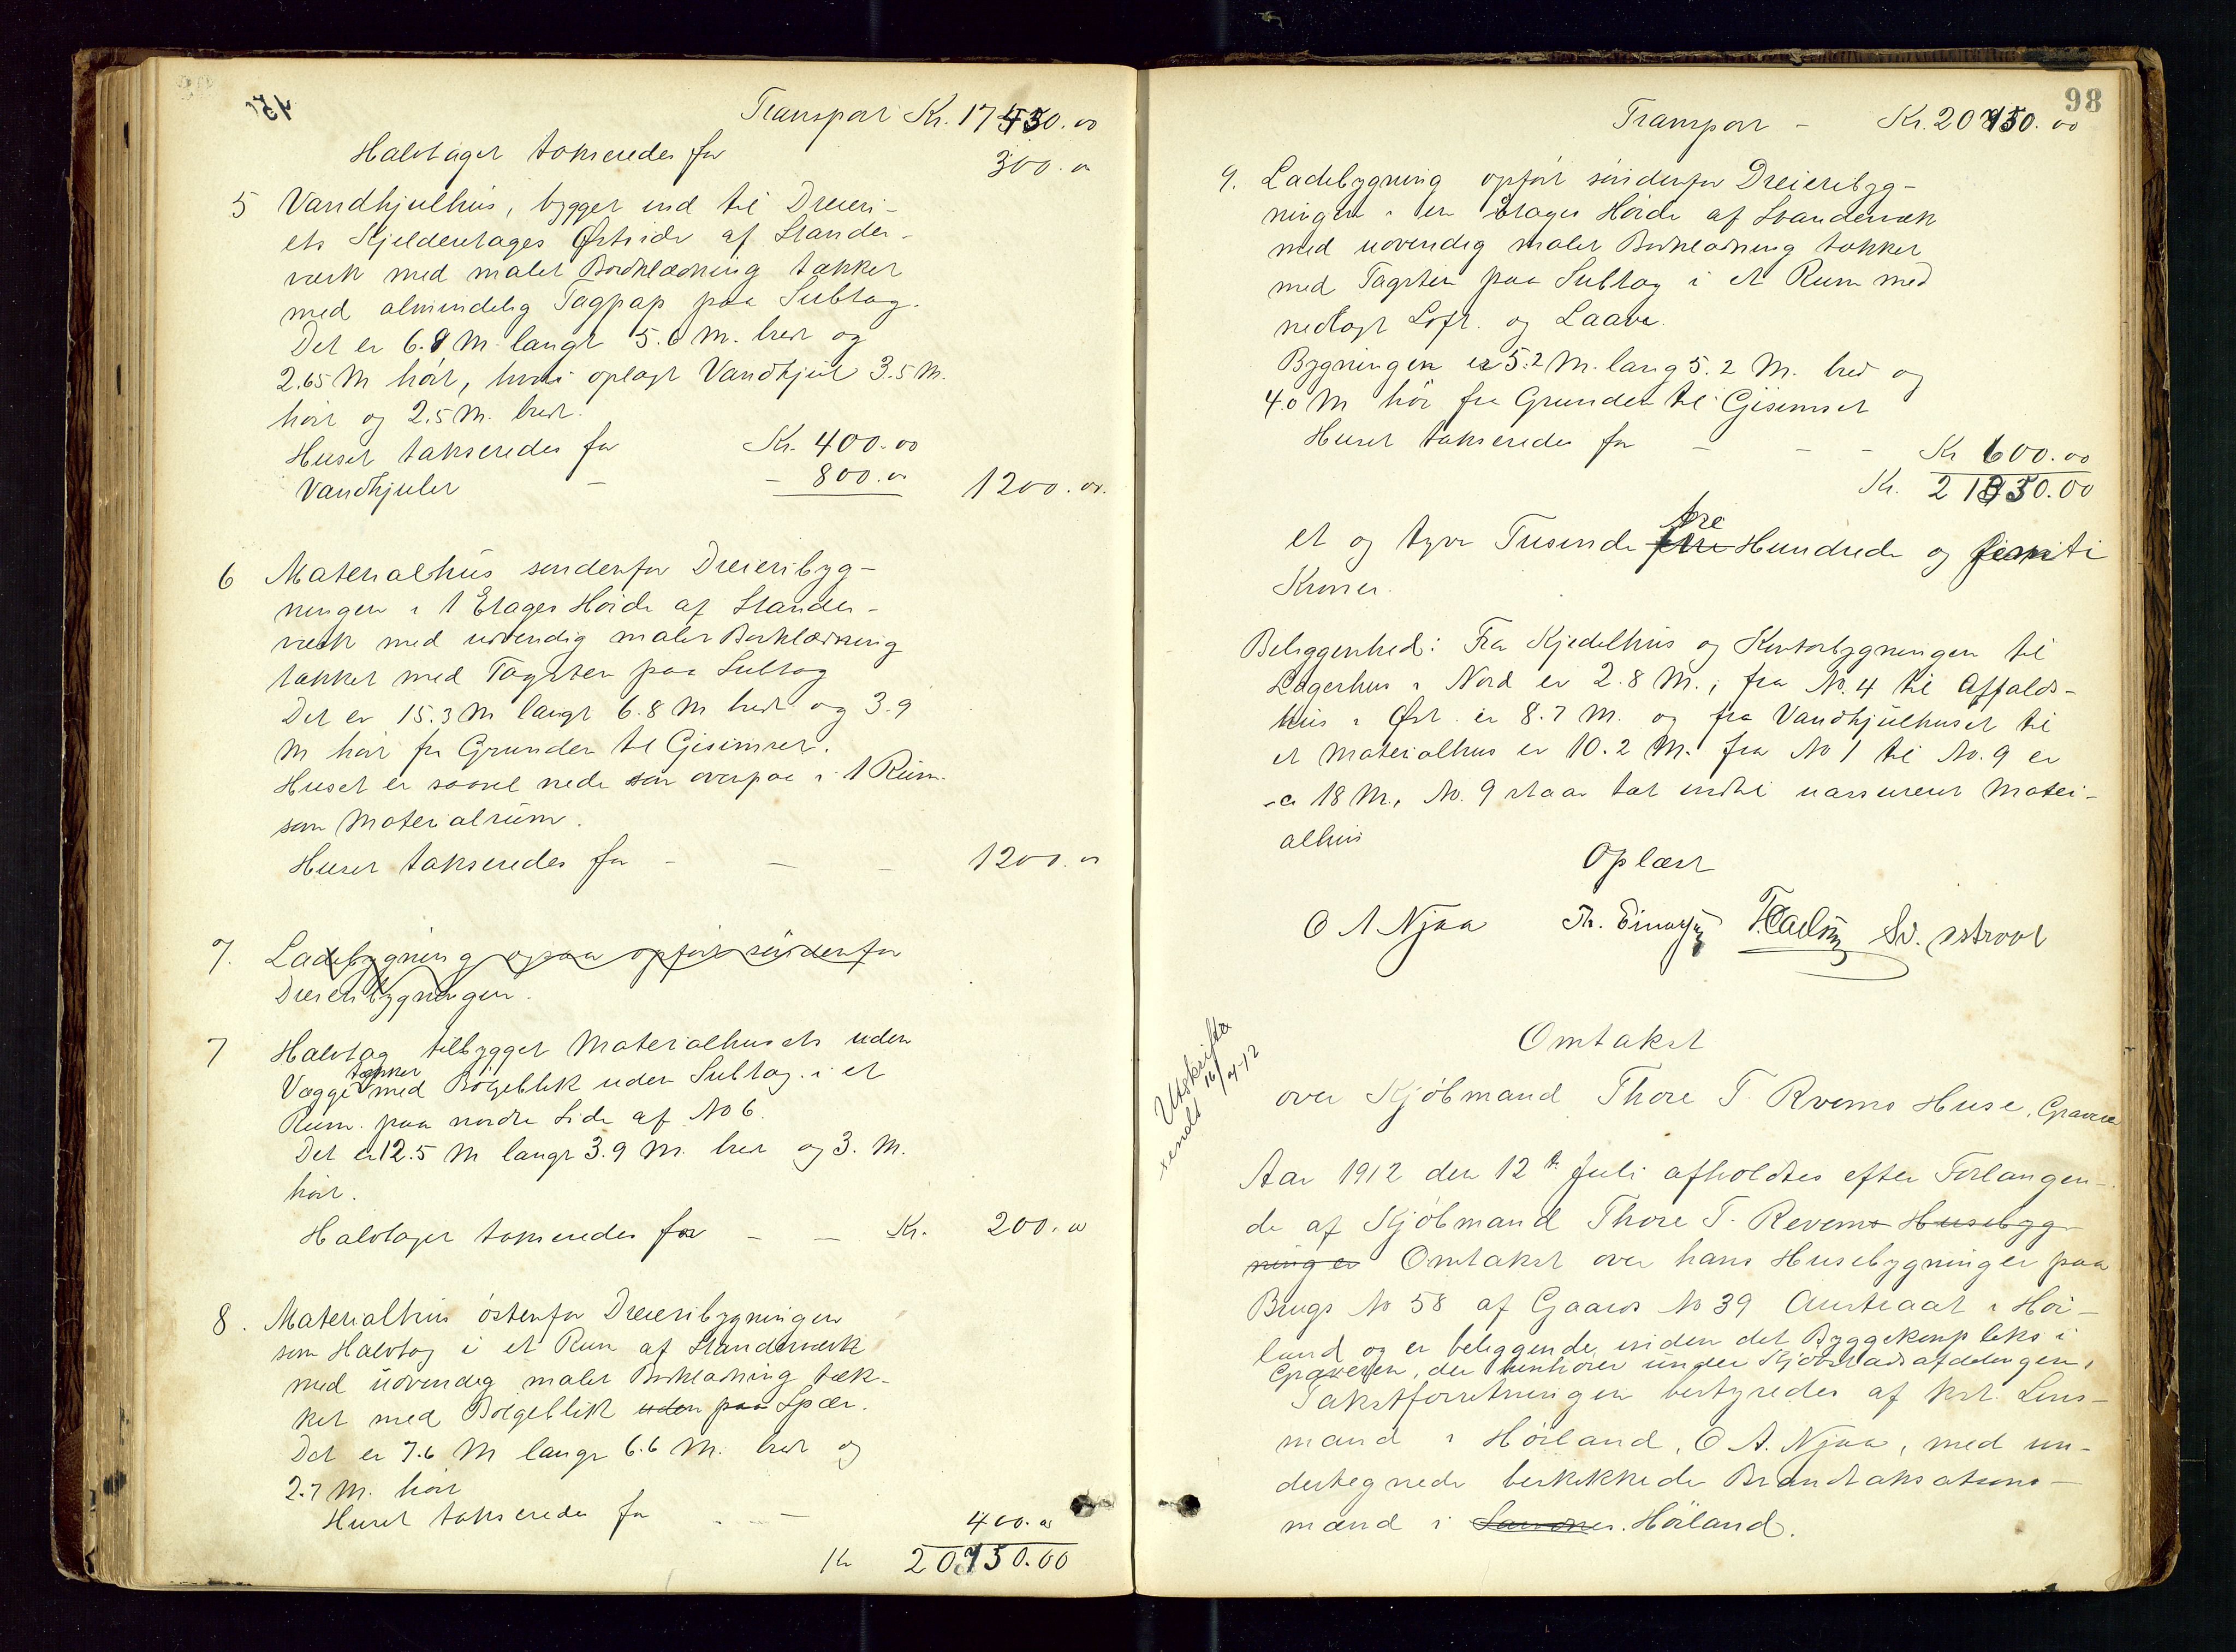 Transport Kr. 17450.00
Halvtaget takseredes for 300.00
5 Vandhjulhus, bygget ind til Dreieri-
ets Kjelderetages Østside af Stander-
værk med malet Bordklædning tækket
med almindelig Tagpap paa Subtag.
Det er 6.8 M. langt 5.6 M. bredt og
2.65 M høit, hvori oplagt Vandhjul 3.5 M.
høit og 2.5 M. bredt.
Huset takseredes for Kr. 400.00
Vandhjulet - - 800.00 1200.00.
6 Materialhus søndenfor Dreieribyg-
ningen i 1 Etages Høide af Stander-
værk med udvendig malet Bordklædning
tækket med Tagsten paa Subtag
Det er 15.3 M langt 6.8 M bredt og 3.9
M høit fra Grunden til Gesimset.
Huset er saavel nede som ovenpaa i 1 Rum
som Materialrum.
Huset takseredes for - - - 1200.00
7. Ladebygning ogsaa opført søndenfor
Dreieribygningen.
7 Halvtag tilbygget Materialhusets uden
tækket
Vægge med Bölgeblik uden Subtag i et
Rum paa nordre Side af No 6.
Det er 12.5 M langt 3.9 M. bredt og 3. M.
høit.
Halvtaget takseredes for - - Kr. 200.00
8. Materialhus østenfor Dreieribygningen
som Halvtag i et Rum af Standerværk
med udvendig malet Bordklædning tæk-
ket med Bölgeblik uden paa Spær.
Det er 7.6 M langt 6.6 M. bredt og
2.7 M. høit
Huset takseredes for - - 400.00
Kr 20750.00
98
Transport - Kr. 20750.00
9. Ladebygning opført søndenfor Dreieribyg-
ningen i en Etages Høide af Standerværk
med udvendig malet Bordklædning tækket
med Tagsten paa Subtag i et Rum med
nedlagt Loft og Laave.
Bygningen er 5.2 M. lang 5.2 M. bred og
4.0 M høi fra Grunden til Gesimset
Huset takseredes for - - - Kr 600.00
Kr. 21350.00
tre
et og tyve Tusinde fire Hundrede og femti
Kroner.
Beliggenhed: Fra Kjedelhus og Kontorbygningen til
Lagerhus i Nord er 2.8 M., fra No. 4 til Affalds-
hus i Øst er 8.7 M. og fra Vandhjulhuset til
et Materialhus er 10.2 M. fra No 1 til No. 9 er
ca 18 M., No. 9 staar tæt indtil uassureret Materi-
alhus
Oplæst
O A Njaa Th. Sv.
Omtakst
over Kjöbmand Thore T. Rvems Huse, Graveren
Utskrift
sendt 16/7-12
Aar 1912 den 12te Juli afholdtes efter Forlangen-
de af Kjöbmand Thore T. Revems Husebyg-
ninger Omtakst over hans Husebygninger paa
Brugs No 58 af Gaards No 39 Austraat i Höi-
land og er beliggende inden det Byggekompleks i
Graveren, der henhörer under Kjöbstadsafdelingen.
Takstforretningen bestyredes af kst. Lens-
mand i Höiland, O A. Njaa, med un-
dertegnede beskikkede Brandtaksations-
mænd i Sandnes. Höiland.